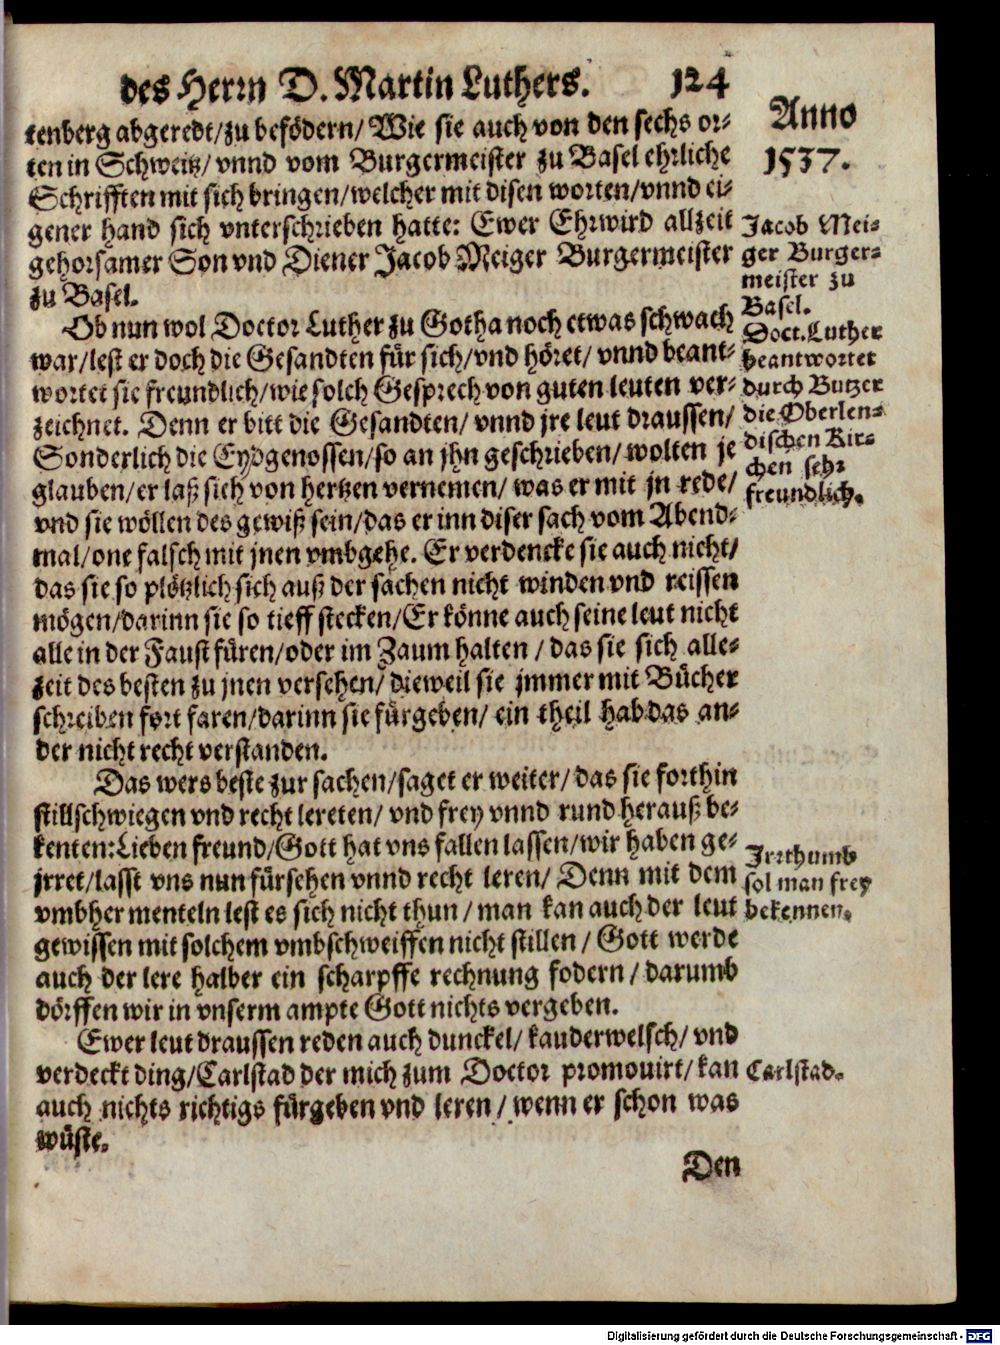 des Herrn D. Martin Luthers. 124
tenberg abgeredt/zu befödern/ Wie sie auch von den sechs or⸗
ten in Schweitz/ vnnd vom Burgermeister zu Basel ehrliche
Schrifften mit sich bringen/welcher mit disen worten/vnnd ei⸗
gener hand sich vnterschrieben hatte: Ewer Ehrwird allzeit
gehorsamer Son vnd Diener Jacob Meiger Burgermeister
zu Basel.
Ob nun wol Doctor Luther zu Gotha noch etwas schwach
war/lest er doch die Gesandten für sich/vnd höret/ vnnd beant⸗
wortet sie freundlich/wie solch Gesprech von guten leuten ver⸗
zeichnet. Denn er bitt die Gesandten/ vnnd jre leut draussen/
Sonderlich die Eydgenossen/so an jhn geschrieben/wolten je
glauben/er laß sich von hertzen vernemen/ was er mit jn rede/
vnd sie wöllen des gewiß sein/das er inn diser sach vom Abend⸗
mal/one falsch mit jnen vmbgehe. Er verdencke sie auch nicht/
das sie so plötzlich sich auß der sachen nicht winden vnd reissen
mögen/darinn sie so tieff stecken/Er könne auch seine leut nicht
alle in der Faust füren/oder im Zaum halten / das sie sich alle⸗
zeit des besten zu jnen versehen/ dieweil sie jmmer mit Bücher
schreiben fort faren/darinn sie fürgeben/ ein theil hab das an⸗
der nicht recht verstanden.
Das wers beste zur sachen/saget er weiter/das sie forthin
stillschwiegen vnd recht lereten/ vnd frey vnnd rund herauß be⸗
kenten:Lieben freund/Gott hat vns fallen lassen/wir haben ge⸗
jrret/lasst vns nun fürsehen vnnd recht leren/ Denn mit dem
vmbher menteln lest es sich nicht thun/ man kan auch der leut
gewissen mit solchem vmbschweiffen nicht stillen / Gott werde
auch der lere halber ein scharpffe rechnung fodern / darumb
dörffen wir in vnserm ampte Gott nichts vergeben.
Ewer leut draussen reden auch dunckel/ kauderwelsch/ vnd
verdeckt ding/Carlstad der mich zum Doctor promouirt/ kan
auch nichts richtigs fürgeben vnd leren / wenn er schon was
wüste.
Den
Anno
1537.
Jacob Mei⸗
ger Burger⸗
meister zu
Basel.
Doct. Luther
beantwortet
durch Butzer
die Oberlen⸗
dischen Kir⸗
chen sehr
freundlich.
Irrthumb
sol man frey
bekennen.
Carlstad.
Digitalisierung gefördert durch die Deutsche Forschungsgemeinschaft - DFG